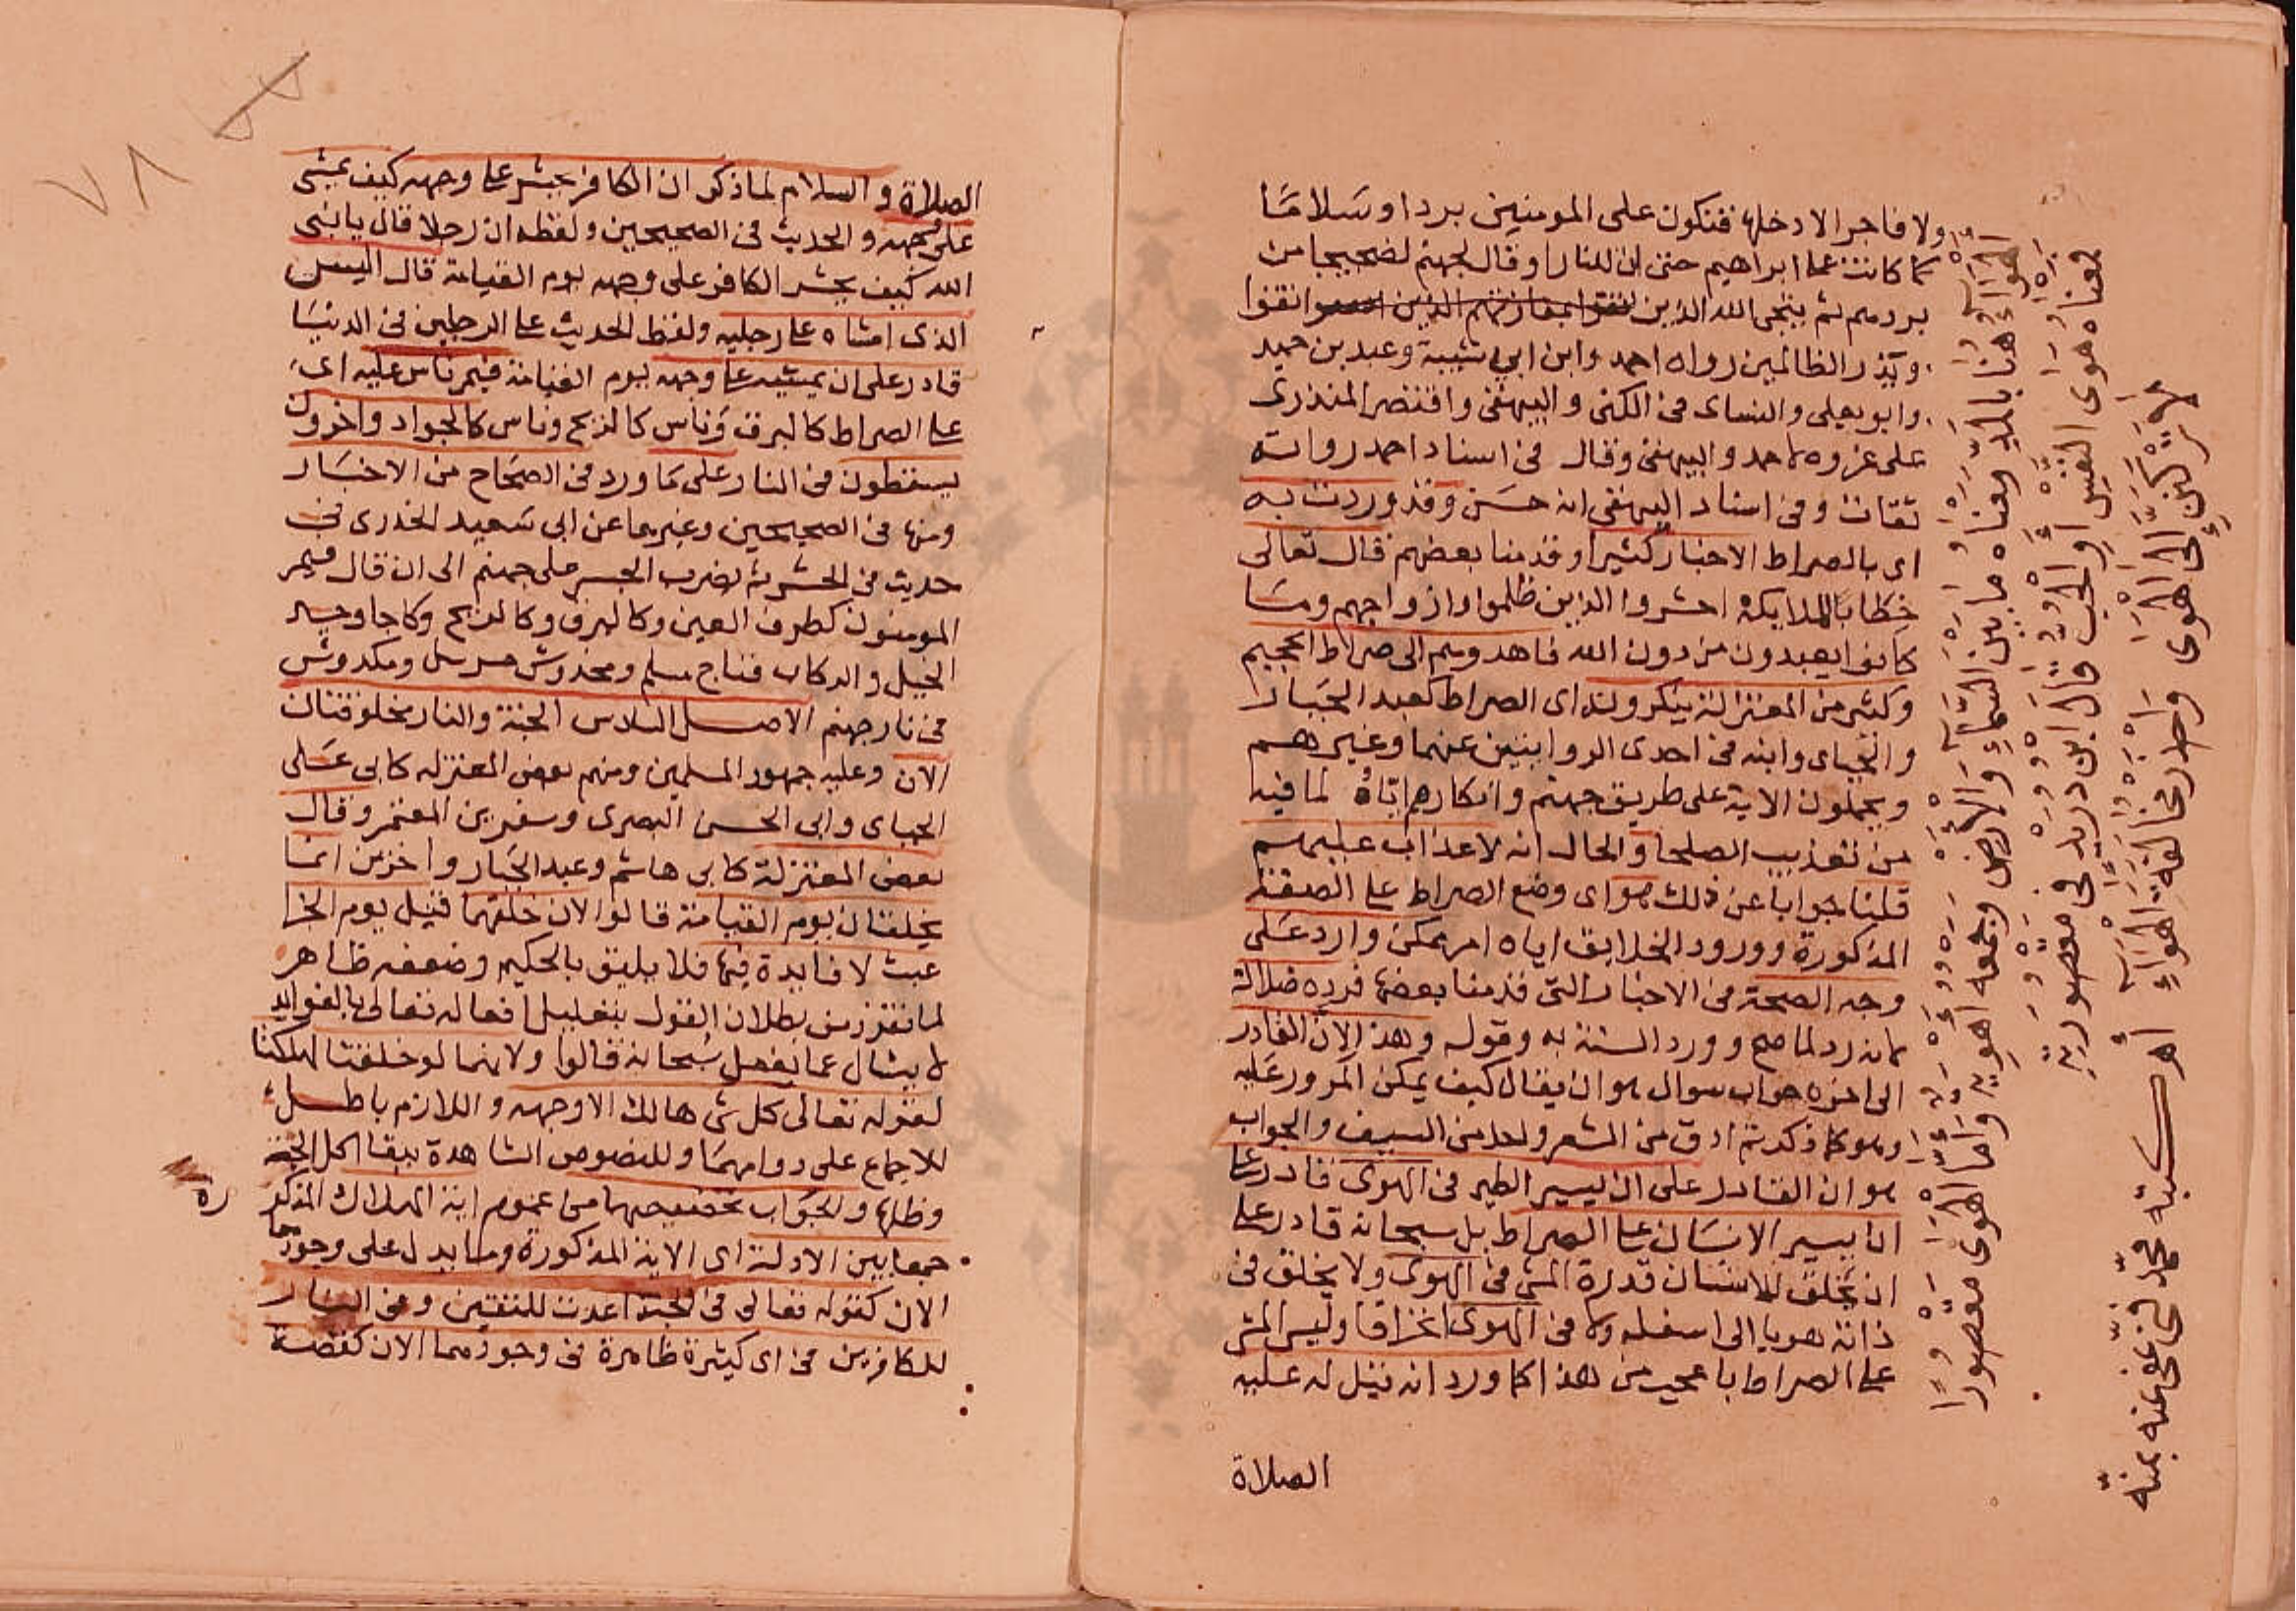 ولا فاجر الا دخلها فتكون على المومنين بردا وسلاما
كما كانت على ابراهيم حتى ان للنار او قال لجهنم لضجيجا من
بردهم ثم ينجى الله الذين اتقوا
ويذر الظالمين رواه احمد وابن ابى شيبة وعبد بن حميد
وابو يعلى والنساى فى الكنى والبيهقى واقتصر المنذرى
على عزوه لاحمد والبيهقى وقال فى اسناد احمد رواته
ثقات وفى اسناد البيهقى انه حسن وقد وردت به
اى بالصراط الاخبار كثيرا وقدمنا بعضهم قال تعالى
خطابا للملايكة احشروا الذين ظلموا وازواجهم وما
كانوا يعبدون من دون الله فاهدوهم الى صراط الجحيم
وكثير من المعتزلة ينكرونه اى الصراط كعبد الجبار
والجباى وابنه فى احدى الروايتين عنهما وغيرهم
ويحملون الاية على طريق جهنم وانكارهم اياه لما فيه
من تعذيب الصلحا والحال انه لا عذاب عليهم
قلنا جوابا عن ذلك هو اى وضع الصراط على الصفة
المذكورة وورود الخلايق اياه امر ممكن وارد على
وجه الصحة فى الاخبار التى قدمنا بعضها فرده ضلالة
لانه رد لما صح وورد السنة به وقوله وهذا لان القادر
الى اخره جواب سوال هو ان يقال كيف يمكن المرور عليه
وهو كما ذكرتم ادق من الشعر واحد من السيف والجواب
هو ان القادر على ان يسير الطير فى الهوى قادر على
ان يسير الانسان على الصراط بل سبحانه قادر على
ان يخلق للانسان قدرة المشى فى الهوى ولا يخلق فى
ذاته هويا الى اسفله ولا فى الهوى انخراقا وليس المشى
على الصراط باعجب من هذا كما ورد انه قيل له عليه
الصلاة
الهواء هنا بالمد معناه ما بين السماء والارض وجمعه اهوية واما الهوى مقصورا
معناه هوى النفس او الحب قال ابن دريد فى مقصوريته
لا تركنن الى الهوى واحذر مخالفة الهواء اهـ كتبه محمد فنى عفى عنه بمنه
٧٨
الصلاة والسلام لما ذكر ان الكافر يحشر على وجهه كيف يمشى
على وجهه والحديث فى الصحيحين ولفظه ان رجلا قال يا نبى
الله كيف يحشر الكافر على وجهه يوم القيامة قال اليس
الذى امشاه على رجليه ولفظ الحديث على الرجلين فى الدنيا
قادر على ان يمشيه على وجهه يوم القيامة فيمر ناس عليه اى
على الصراط كالبرق وناس كالريح وناس كالجواد واخرون
يسقطون فى النار على ما ورد فى الصحاح من الاخبار
ومنها فى الصحيحين وغيرهما عن ابى سعيد الخدرى فى
حديث فى الحشر ثم يضرب الجسر على جهنم الى ان قال فيمر
المومنون كطرف العين وكالبرق وكالريح وكاجاويد
الخيل والركاب فناج مسلم ومخدوش مرسل ومكدوش
فى نار جهنم الاصل السادس الجنة والنار مخلوقتان
الان وعليه جمهور المسلمين ومنهم بعض المعتزله كابى على
الجباى وابى الحسين البصرى وبشر بن المعتمر وقال
بعض المعتزلة كابى هاشم وعبد الجبار واخرين انما
يخلقان يوم القيامة قالوا لان خلقهما قبل يوم الجزا
عبث لا فايدة فيها فلا يليق بالحكيم وضعفه ظاهر
لما تقرر من بطلان القول بتعليل افعاله تعالى بالفوايد
لا يسال عما يفعل سبحانه قالوا ولانهما لو خلقتا لهلكتا
لقوله تعالى كل شى هالك الا وجهه واللازم باطل
للاجماع على دوامهما وللنصوص الشاهدة ببقا اكل الجنة
وظلها والجواب تخصيصهما من عموم اية الهلاك المذكو
ره
جمعا بين الادلة اى الاية المذكورة وما يدل على وجودهما
الان كقوله تعالى فى الجنة اعدت للمتقين وفى النار
للكافرين فى اى كثيرة ظاهرة فى وجودهما الان كقصة